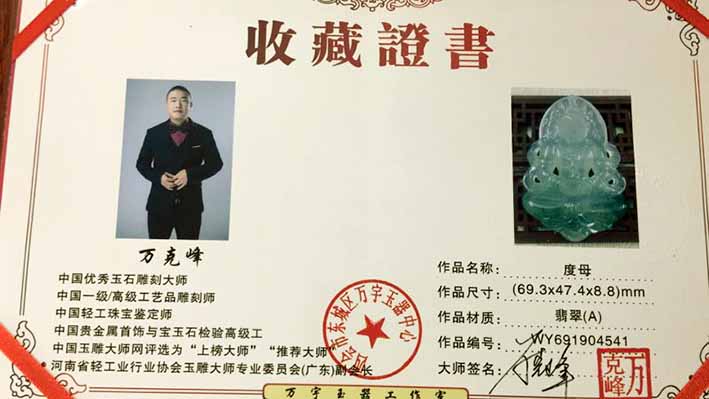 收藏證書
万克峰
中国优秀玉石雕刻大师
中国一级/高级工艺品雕刻师
中国轻工珠宝鉴定师
中国贵金属首饰与宝玉石检验高级工
中国玉雕大师网评选为“上榜大师”“推荐大师”
河南省轻工业行业协会玉雕大师专业委员会(广东)副会长
作品名称: 度母
作品尺寸: (69.3x47.4x8.8)mm
作品材质: 翡翠(A)
作品编号: WY691904541
大师签名:
万克峰
四会市东城区万宇玉器中心
万宇玉器工作室